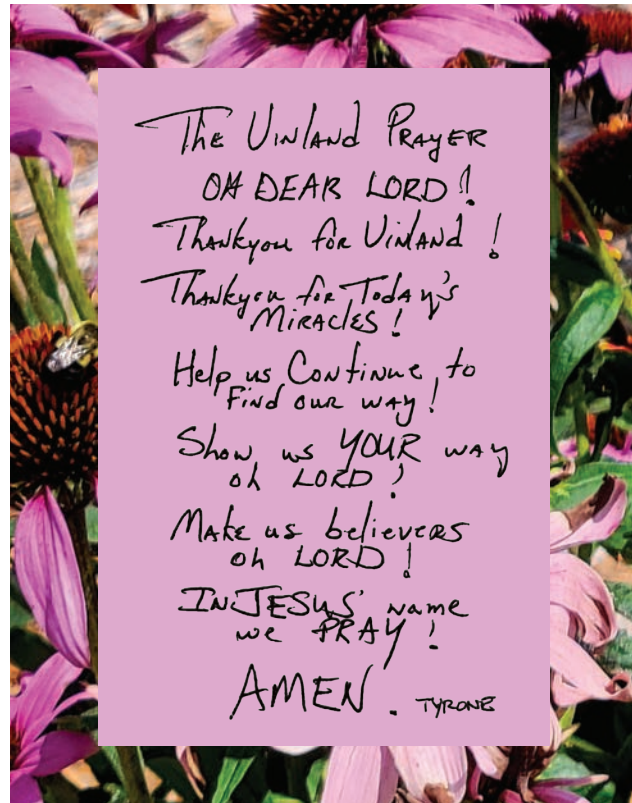 The Vinland Prayer
OH DEAR LORD!
Thankyou for Vinland!
Thankyou for Today's
Miracles!
Help us Continue to
Find our way!
Show us YOUR way
oh LORD!
Make us believers
oh LORD!
In JESUS' name
we PRAY!
AMEN. TYRONE